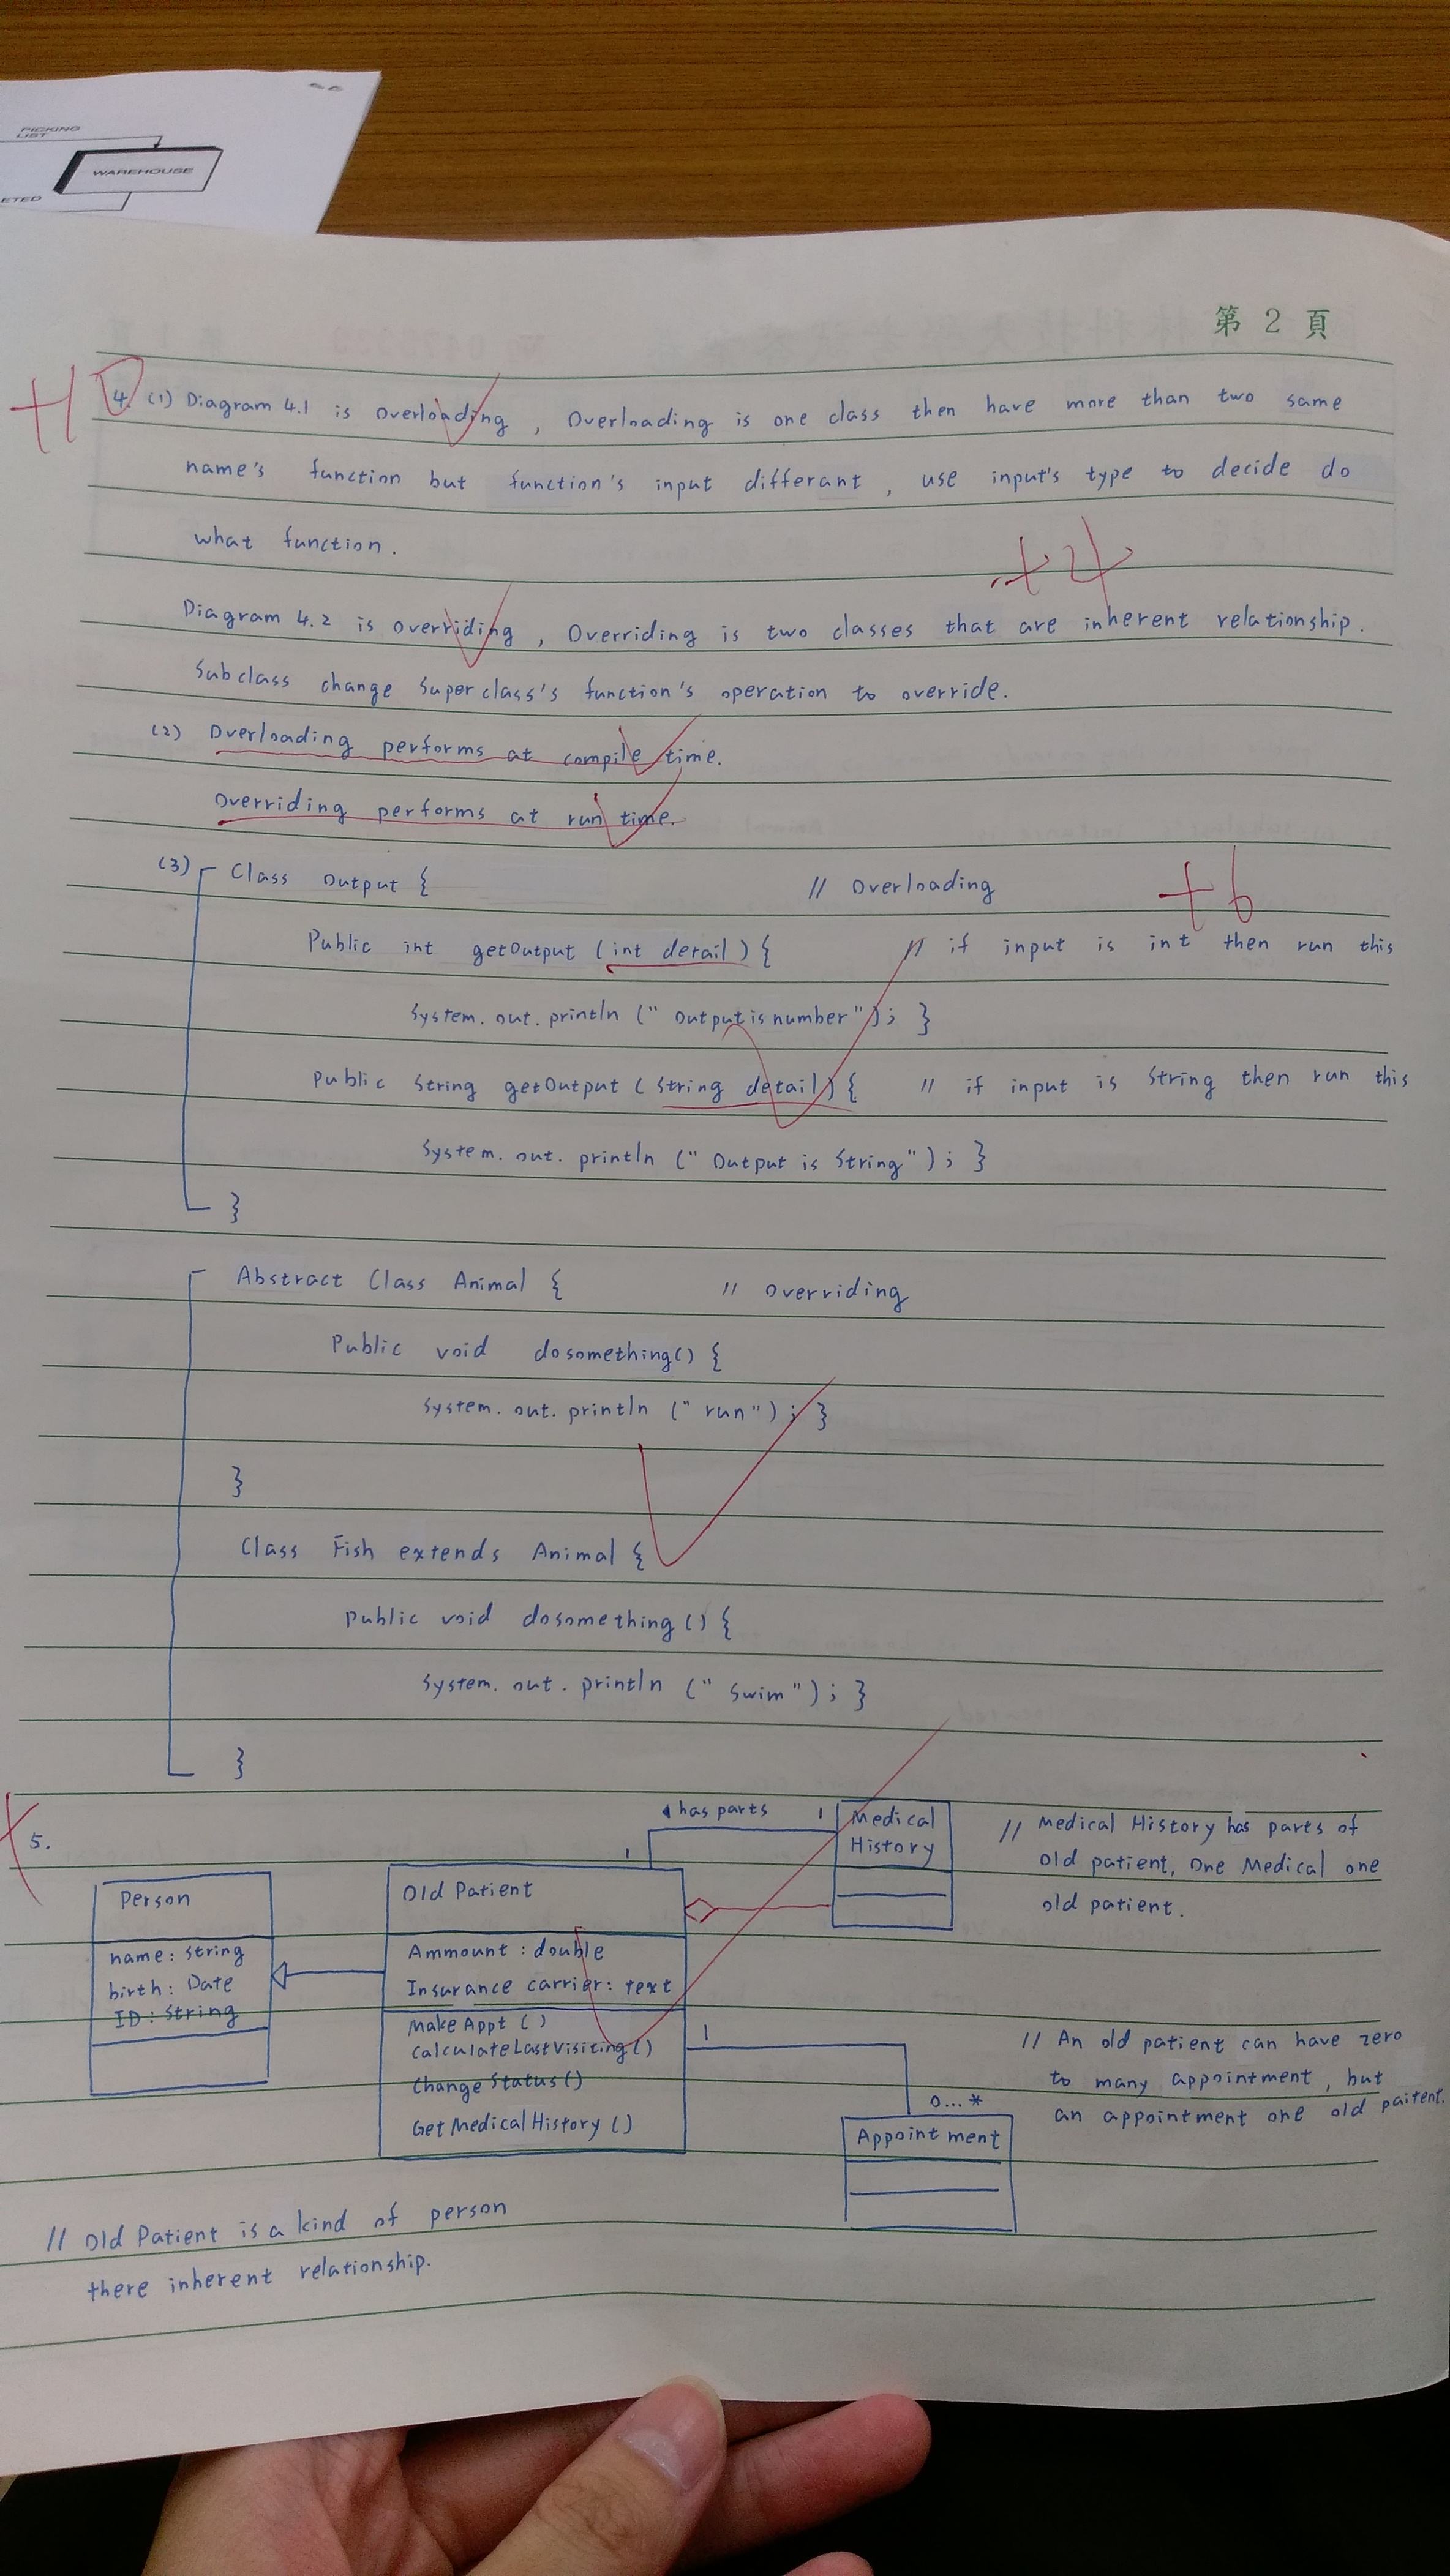 PICKING
LIST
WAREHOUSE
ETED
第 2 頁
+10
4. (1) Diagram 4.1 is Overloading , Overloading is one class then have more than two same
name's function but function's input differant , use input's type to decide do
what function.
+4
Diagram 4.2 is overriding , Overriding is two classes that are inherent relationship.
Subclass change Superclass's function's operation to override.
(2) Overloading performs at compile time.
Overriding performs at run time.
(3) Class Output { // Overloading
+6
Public int getOutput (int detail) { // if input is int then run this
System.out.println (" Output is number") ; }
Public String getOutput ( String detail) { // if input is String then run this
System.out.println (" Output is String") ; }
}
Abstract Class Animal { // Overriding
Public void dosomething() {
System.out.println (" run") ; }
}
Class Fish extends Animal {
Public void dosomething () {
System.out.println (" Swim") ; }
}
5.
has parts 1 Medical
History
// Medical History has parts of
old patient, One Medical one
old patient.
1
Person
name : String
birth : Date
ID : String
Old Patient
Ammount : double
Insurance carrier : text
Make Appt ()
CalculateLastVisiting()
Change Status ()
Get Medical History ()
1
0...*
Appointment
// An old patient can have zero
to many appointment , but
an appointment one old paitent.
// Old Patient is a kind of person
there inherent relationship.